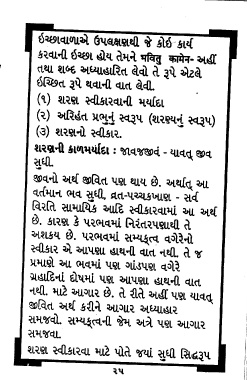 ઇચ્છાવાળાએ ઉપલક્ષણથી જે કોઇ કાર્ય
કરવાની ઇચ્છા હોય તેમને ભવિતુ કામેન- અહીં
તથા શબ્દ અધ્યાહારિત લેવો તે રૂપે એટલે
ઇચ્છિત રૂપે થવાની વાત લેવી.
(૧) શરણ સ્વીકારવાની મર્યાદા
(૨) અરિહંત પ્રભુનું સ્વરૂપ (શરણ્યનું સ્વરૂપ)
(૩) શરણનો સ્વીકાર.
શરણની કાળમર્યાદા : જાવજજીવં - યાવત્ જીવ
સુધી.
જીવનો અર્થ જીવિત પણ થાય છે. અર્થાત્ આ
વર્તમાન ભવ સુધી, વ્રત-પચ્ચકખાણ - સર્વ
વિરતિ સામાયિક આદિ સ્વીકારવામાં આ અર્થ
છે. કારણ કે પરભવમાં નિરંતરપણાથી તે
અશક્ય છે. પરભવમાં સમ્યકૃત્વ વગેરેનો
સ્વીકાર એ આપણા હાથની વાત નથી. તે જ
પ્રમાણે આ ભવમાં પણ ગાંડપણ વગેરે
ગ્રહાદિનાં દોષમાં પણ આપણા હાથની વાત
નથી. માટે આગાર છે. તે રીતે અહીં પણ યાવત્
જીવિત અર્થ કરીને આગાર અધ્યાહાર
સમજવો. સમ્યકૃત્વની જેમ અત્રે પણ આગાર
સમજવા.
શરણ સ્વીકારવા માટે પોતે જ્યાં સુધી સિદ્ધરૂપ
૨૫